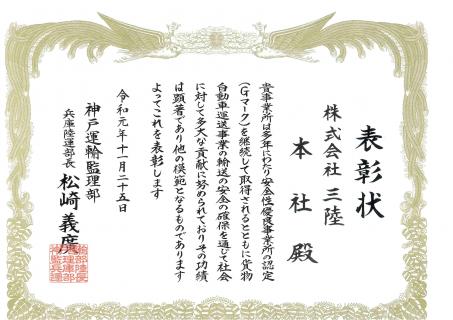 表彰状
株式会社 三陸
本社 殿
貴事業所は多年にわたり安全性優良事業所の認定
(Gマーク)を継続して取得されるとともに貨物
自動車運送事業の輸送の安全の確保を通じて社会
に対して多大な貢献に努められておりその功績
は顕著であり他の模範となるものであります
よってこれを表彰します
令和元年十一月二十五日
神戸運輸監理部
兵庫陸運部長 松崎義廣